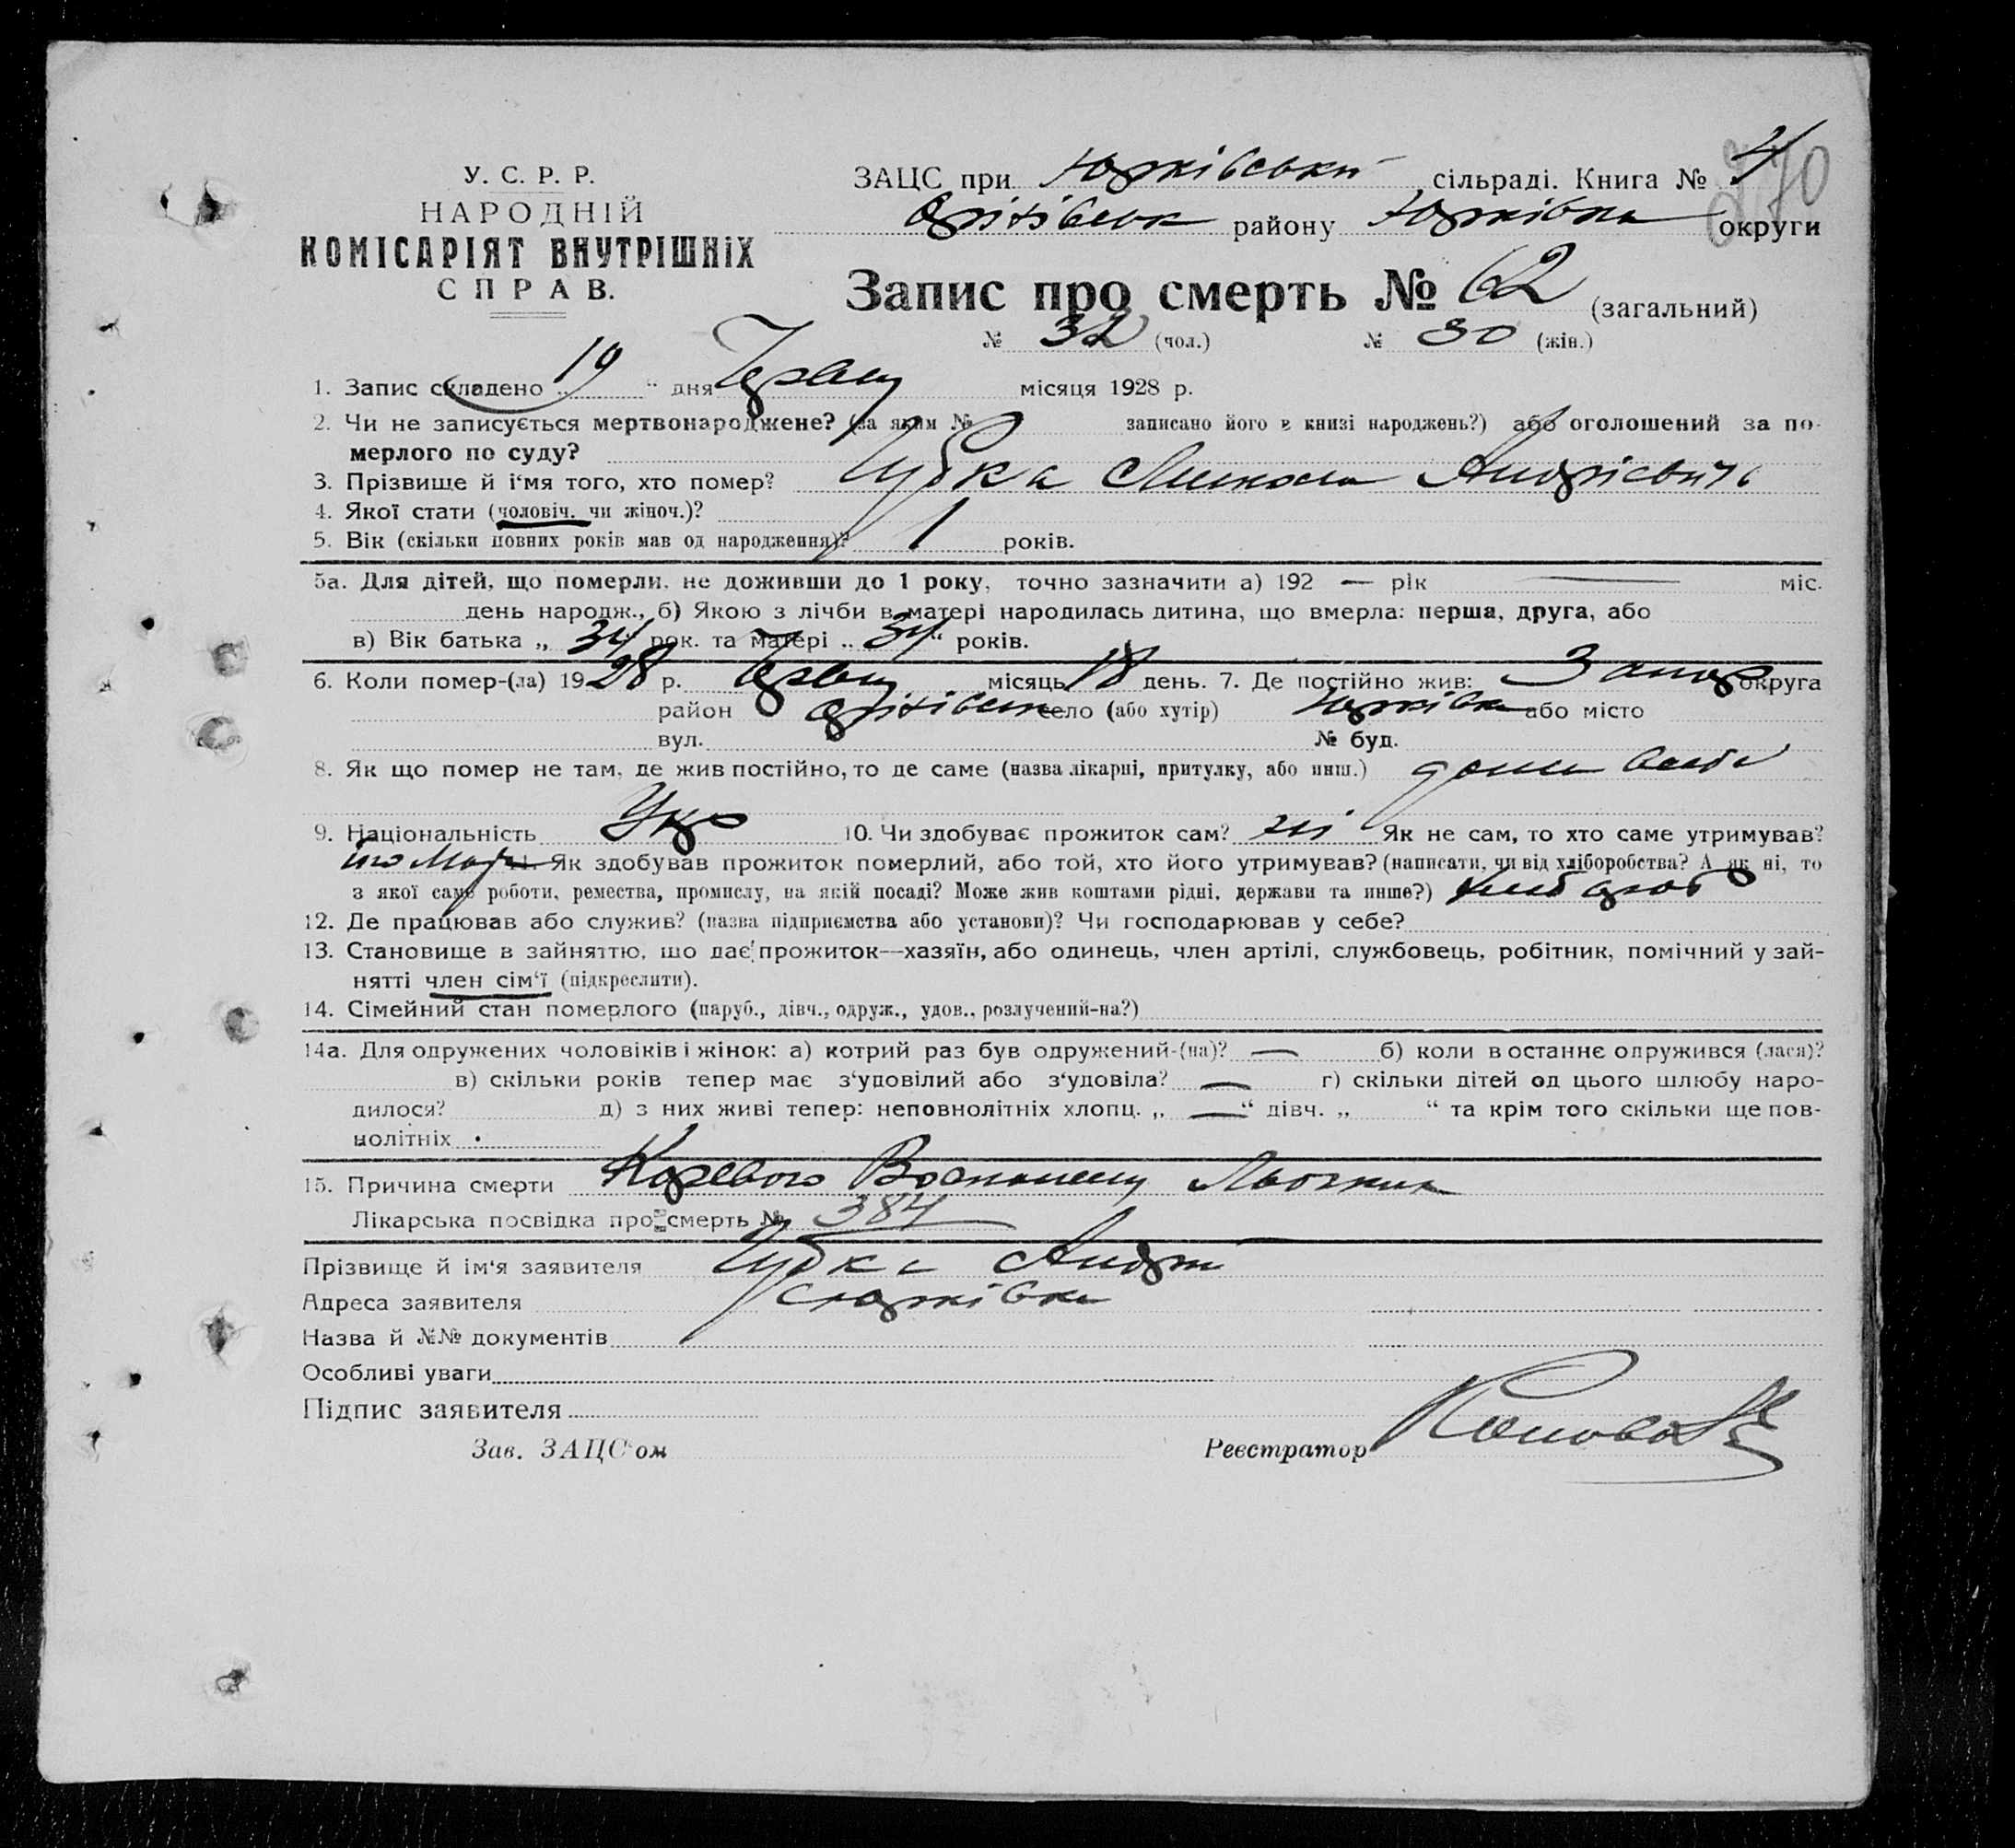 У. С. Р. Р.
НАРОДНІЙ
КОМІСАРІЯТ ВНУТРІШНІХ
СПРАВ.
ЗАЦС при Юрківський сільраді. Книга № 4
270
Оріхівськ району Юрківка округи
Запис про смерть № 62 (загальний)
№ 32 (чол.) № 30 (жін.)
1. Запис складено „ 19 “ дня Червня місяця 1928 р.
2. Чи не записується мертвонароджене? (за яким № записано його в книзі народжень?) або оголошений за по-
мерлого по суду?
3. Прізвище й ім'я того, хто помер? Чубка Микола Андрієвичь
4. Якої стати (чоловіч. чи жіноч.)?
5. Вік (скільки повних років мав од народження)? 1 років.
5а. Для дітей, що померли, не доживши до 1 року, точно зазначити а) 192 — рік — міс.
день народж., б) Якою з лічби в матері народилась дитина, що вмерла: перша, друга, або
в) Вік батька „ 34 “ рок. та матері „ 34 “ років.
6. Коли помер-(ла) 1928 р. Червня місяць 18 день. 7. Де постійно жив: Запор округа
район Оріхівськ село (або хутір) Юрківка або місто
вул. № буд.
8. Як що помер не там, де жив постійно, то де саме (назва лікарні, притулку, або инш.) дома
9. Національність Укр 10. Чи здобуває прожиток сам? ні Як не сам, то хто саме утримував?
11. Як здобував прожиток померлий, або той, хто його утримував? (написати, чи від хліборобства? А як ні, то
з якої саме роботи, ремества, промислу, на якій посаді? Може жив коштами рідні, держави та инше?) хлібороб
12. Де працював або служив? (назва підприємства або установи)? Чи господарював у себе?
13. Становище в зайняттю, що дає прожиток—хазяїн, або одинець, член артілі, службовець, робітник, помічний у зай-
нятті член сім'ї (підкреслити).
14. Сімейний стан померлого (паруб., дівч., одруж., удов., розлучений-на?)
14а. Для одружених чоловіків і жінок: а) котрий раз був одружений-(на)? — б) коли востаннє одружився (лася)?
в) скільки років тепер має з'удовілий або з'удовіла? — г) скільки дітей од цього шлюбу наро-
дилося? д) з них живі тепер: неповнолітніх хлопц. „ — “ дівч. „ “ та крім того скільки ще пов-
нолітніх
15. Причина смерти
Лікарська посвідка про смерть № 384
Прізвище й ім'я заявителя Чубка Андрій
Адреса заявителя с Юрківка
Назва й №№ документів
Особливі уваги
Підпис заявителя
Зав. ЗАЦС'ом Реєстратор